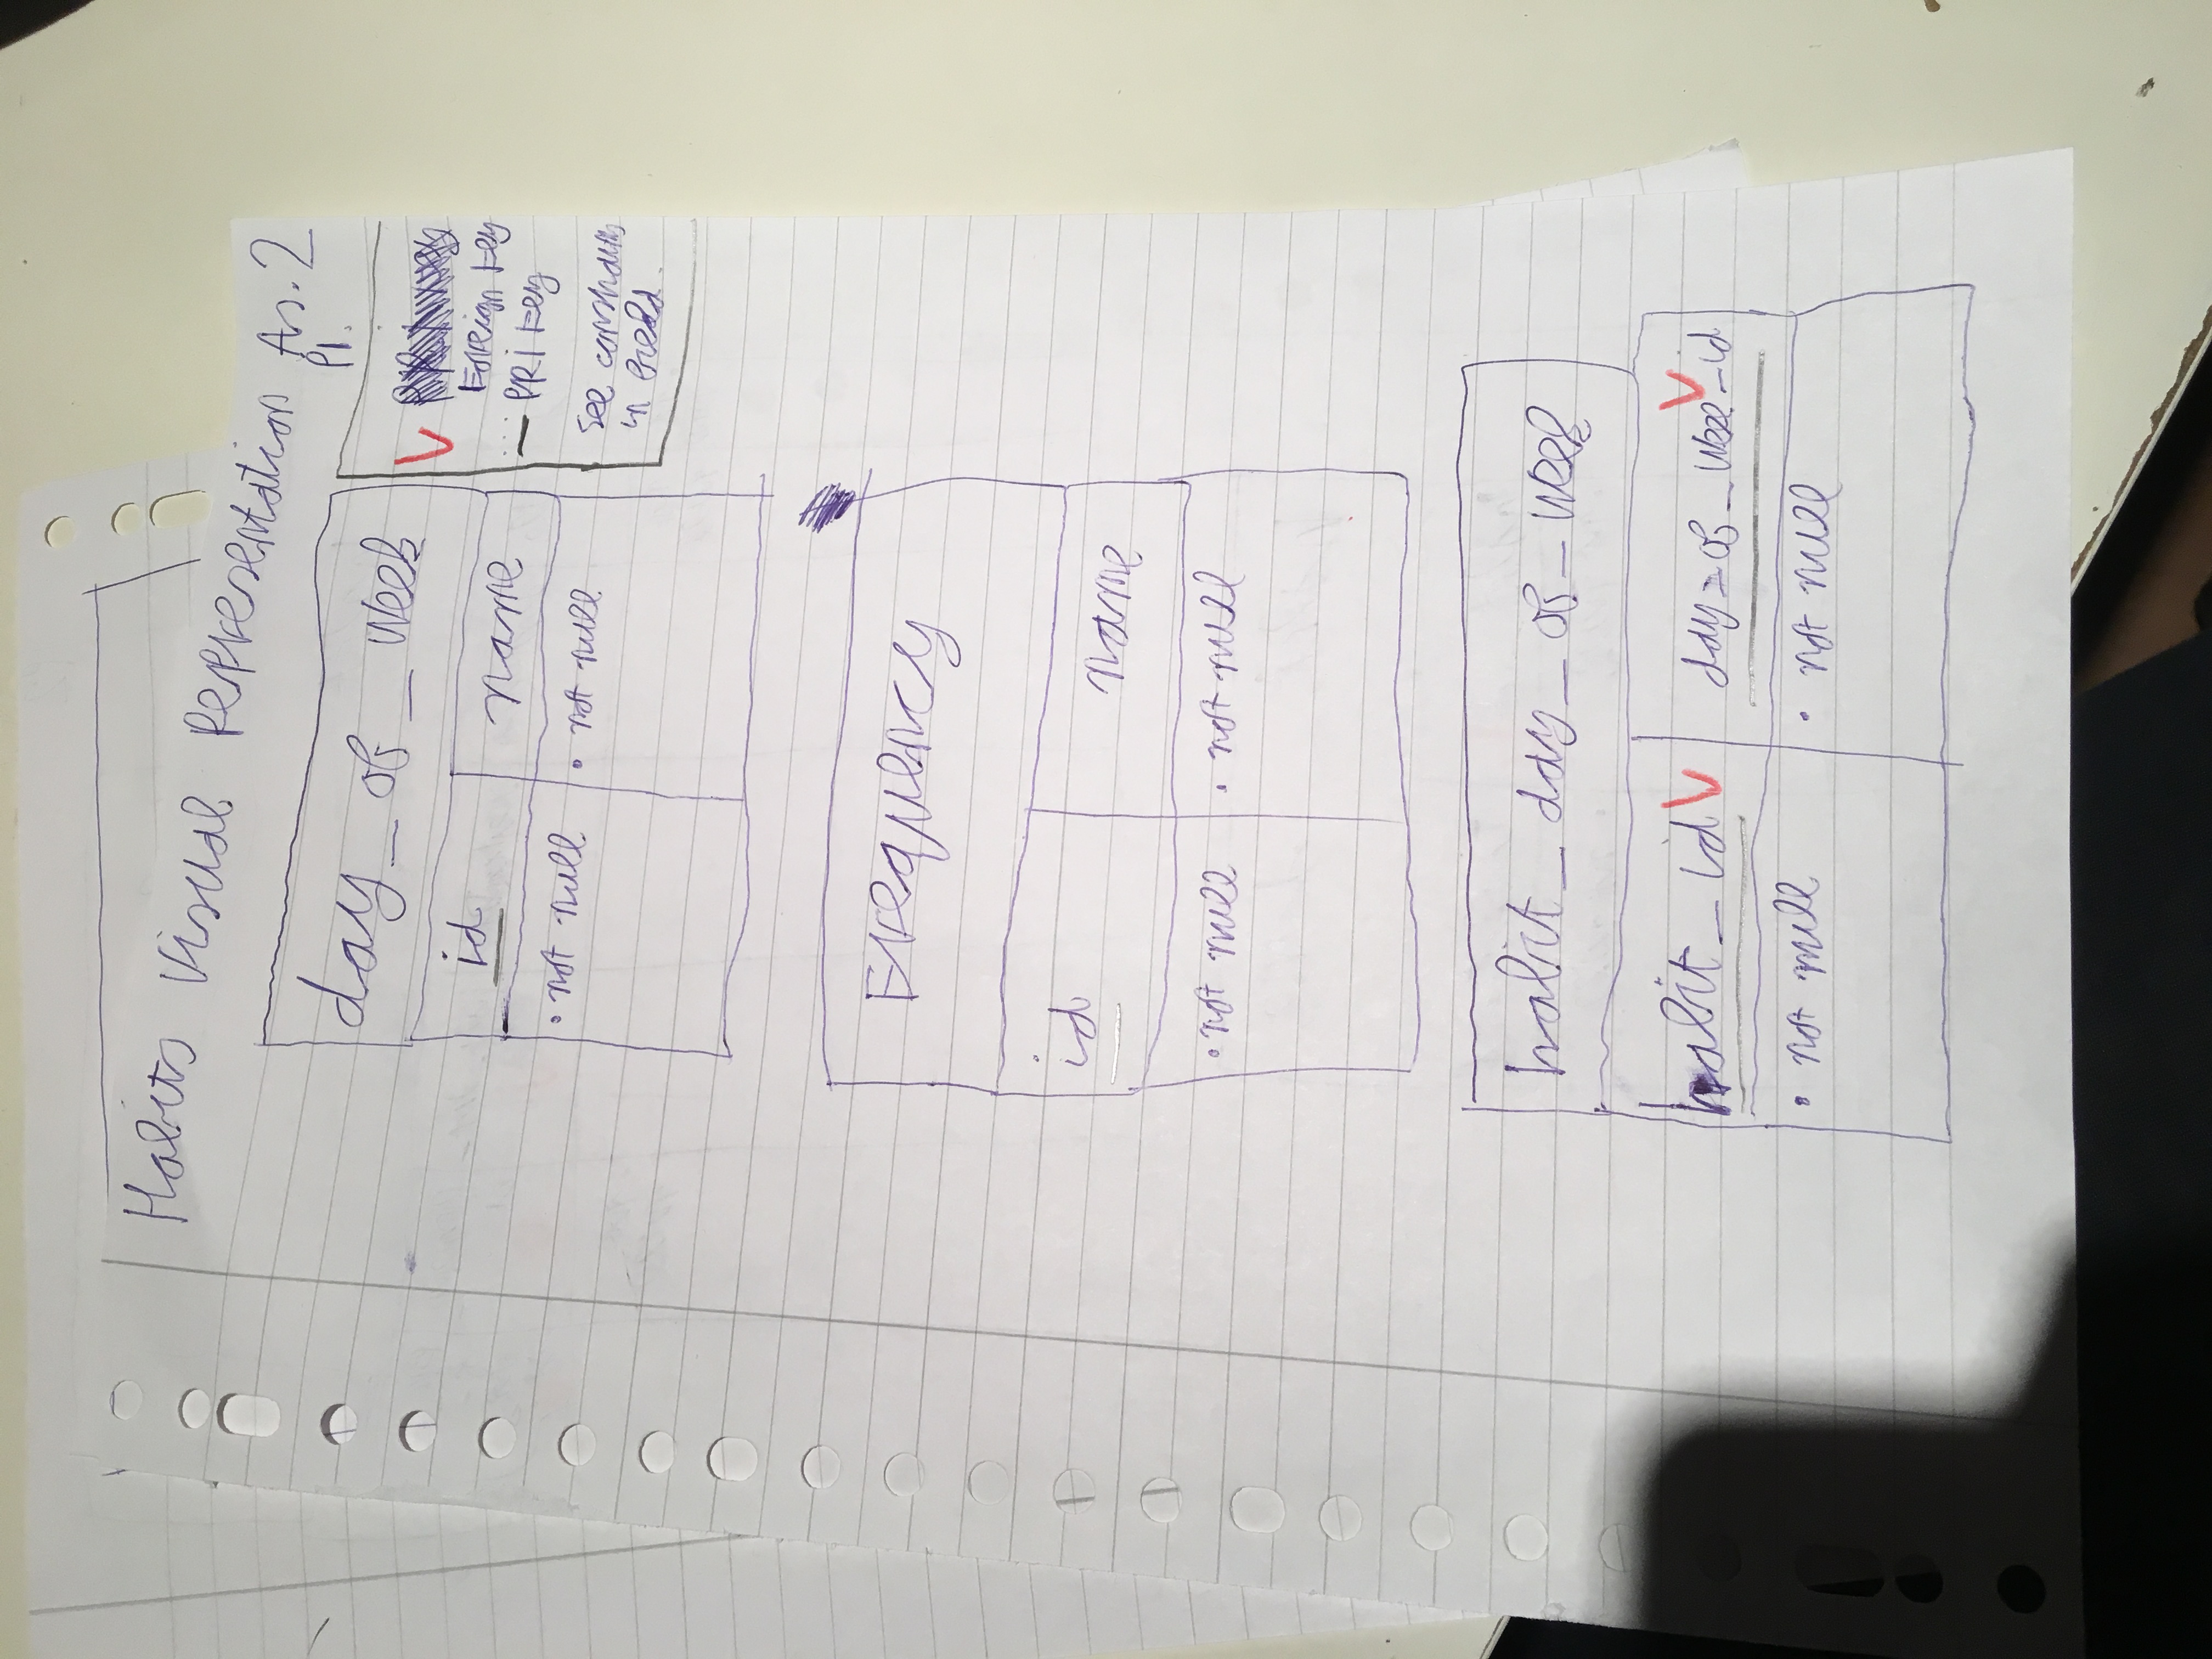 Habits Visual Representation As. 2
P1.
day_of_week
id name
• not null • not null
Foreign key
PRI key
See constraints
in field.
Frequency
id name
• not null • not null
habit_day_of_week
habit_id day_of_week_id
• not null • not null